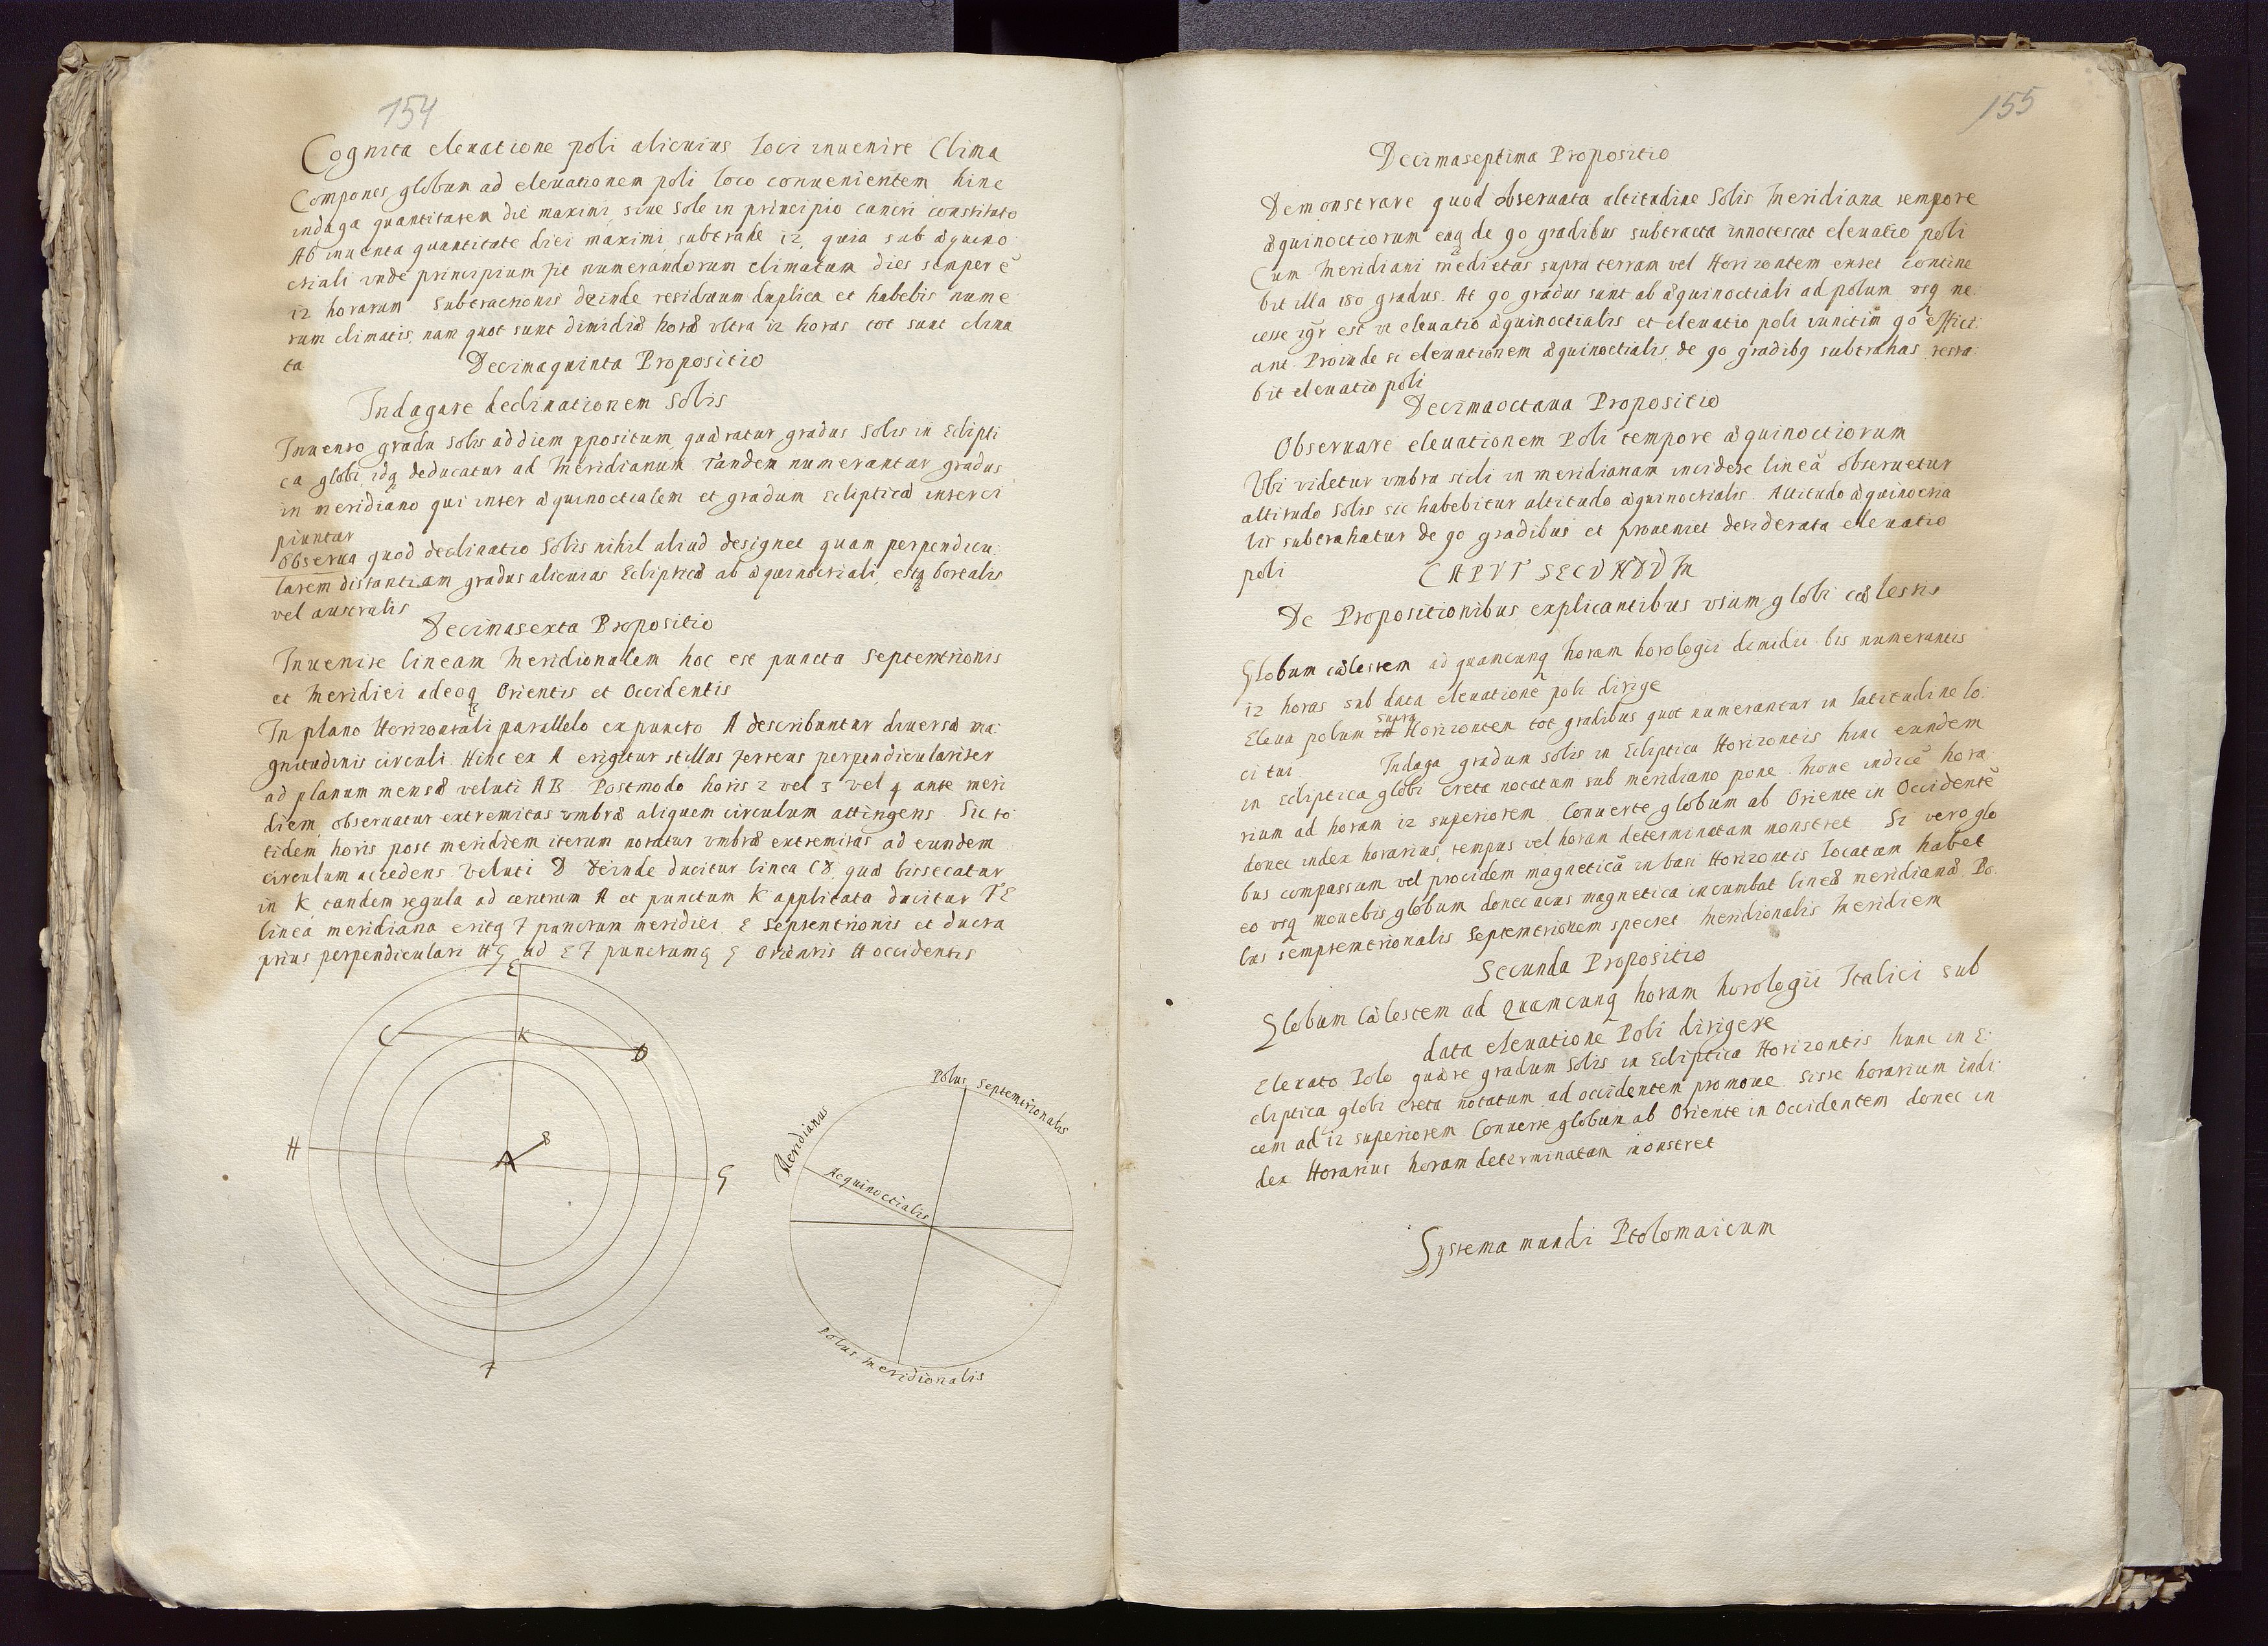 154
Cognita eleuatione poli alicuius loci inuenire Clima
Compones globum ad eleuationem poli loco conuenientem hinc
indaga quantitatem diei maximi, siue Sole in principio cancri constituto
Ab inuenta quantitate diei maximi subtrahe 12, quia sub æquino
ctiali vnde principium fit numerandorum climatum dies semper ē
12 horarum Subtractionis deinde residuum duplica et habebis nume
rum climatis, nam quot sunt dimidiæ horæ vltra 12 horas tot sunt clima
ta
Decimaquinta Propositio
Indagare declinationem Solis
Inuento gradu Solis ad diem ppositum quæratur gradus Solis in Eclipti
ca globi, idq deducatur ad Meridianum Tandem numerantur gradus
in meridiano qui inter æquinoctialem et gradum eclipticæ interci
piuntur
Obserua quod declinatio Solis nihil aliud designet quam perpendicu
larem distantiam gradus alicuius Eclipticæ ab æquinoctiali, estq borealis
vel australis
Decimasexta Propositio
Inuenire lineam Meridionalem hoc est puncta Septemtrionis
et Meridiei adeoq Orientis et Occidentis
In plano Horizontali parallelo ex puncto A describuntur diuersæ ma
gnitudinis circuli Hinc ex A erigitur stillus ferreus perpendiculariter
ad planum mensæ veluti AB Postmodo horis 2 vel 3 vel 4 ante meri
diem, obseruatur extremitas vmbræ aliquem circulum attingens Sic to
tidem horis post meridiem iterum notatur vmbræ extremitas ad eundem
circulum accedens veluti D deinde ducitur linea CD, quæ bissecatur
in K, tandem regula ad centrum A et punctum K applicata ducitur FE
linea meridiana eritq F punctum meridiei E Septentrionis et ducta
prius perpendiculari HG ad EF punctumq G Orientis H occidentis
E
C
K
D
H
A
B
G
F
Polus Septemtrionalis
Meridianus
Aequinoctialis
Polus meridionalis
155
Decimaseptima Propositio
Demonstrare quod obseruata altitudine Solis Meridiana tempore
æquinoctiorum eaq de 90 gradibus subtracta innotescat eleuatio poli
Cum Meridiani medietas supra terram vel Horizontem extet contine
bit illa 180 gradus. At 90 gradus sunt ab æquinoctiali ad polum vsq ne
cesse igr est vt eleuatio æquinoctialis et eleuatio poli iunctim 90 effici
ant Proinde si eleuationem æquinoctialis, de 90 gradibq subtrahas resta
bit eleuatio poli
Decimaoctaua Propositio
Obseruare eleuationem Poli tempore æquinoctiorum
Vbi videtur vmbra stili in meridianam incidere lineā obseruetur
altitudo Solis sic habebitur altitudo æquinoctialis. Altitudo æquinoctia
lis subtrahatur de 90 gradibus et proueniet desiderata eleuatio
poli
CAPVT SECVNDVM
De Propositionibus explicantibus vsum globi cælestis
Globum cælestem ad quamcunq horam horologii dimidii bis numerantis
12 horas sub data eleuatione poli dirige
Eleua polum in supra Horizontem tot gradibus quot numerantur in latitudine lo
ci tui Indaga gradum solis in Ecliptica Horizontis hinc eundem
in Ecliptica globi creta notatum sub meridiano pone. Moue indicē hora
rium ad horam 12 superiorem. Conuerte globum ab Oriente in Occidentē
donec index horarius, tempus vel horam determinatam monstret Si vero glo
bus compassum vel pyxidem magneticā in basi Horizontis locatam habet
eo vsq mouebis globum donec acus magnetica incumbat lineæ meridianæ. Po
lus semptemtrionalis Septemtrionem spectet meridionalis Meridiem
Secunda Propositio
Globum Cælestem ad Quamcunq horam horologii Italici sub
data eleuatione Poli dirigere
Eleuato Polo quære gradum Solis in Ecliptica Horizontis hunc in E
cliptica globi creta notatum ad occidentem promoue. Siste horarium indi
cem ad 12 superiorem Conuerte globum ab Oriente in Occidentem donec in
dex Horarius horam determinatam monstret
Systema mundi Ptolomaicum